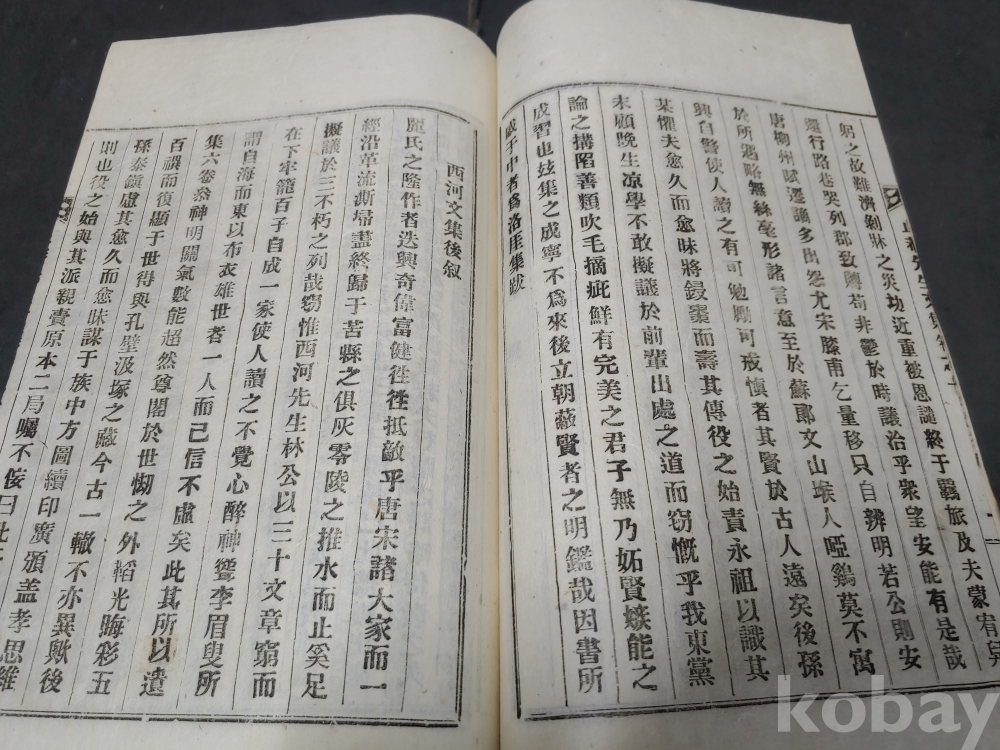 躬之故難濟剝牀之災功近重被恩譴終于羇旅及夫蒙宥
還行路巷哭列郡致賻苟非鬱於時議洽乎衆望安能有是哉
唐柳州賦遷謫多出怨尤宋滕甫乞量移只自辨明若公則安
於所遇略無絲毫形諸言意至於蘇郞文山堠人啞鷄莫不寓
興自警使人讀之有可勉勵可戒愼者其賢於古人遠矣後孫
某懼夫愈久而愈昧將鋟棗而壽其傳役之始責永祖以識其
末顧晩生凉學不敢擬議於前輩出處之道而窃慨乎我東黨
論之搆陷善類吹毛摘疵鮮有完美之君子無乃妬賢嫉能之
成習也玆集之成寧不爲來後立朝蔽賢者之明鑑哉因書所
感于中者爲洛厓集跋
西河文集後叙
麗氏之隆作者迭興奇偉富健徃徃抵敵乎唐宋諸大家而一
經沿革流澌埽盡終歸于苦縣之俱灰零陵之推水而止奚足
擬議於三不朽之列哉窃惟西河先生林公以三十文章窮而
在下牢籠百子自成一家使人讀之不覺心醉神聳李眉叟所
謂自海而東以布衣雄世者一人而已信不虛矣此其所以遺
集六卷叅神明關氣數能超然尊閣於世惚之外韜光晦彩五
百禩而復顯于世得與孔壁汲塚之藏今古一轍不亦異歟後
孫泰鎭慮其愈久而愈昧謀于族中方圖續印廣頒盖孝思維
則也役之始與其派親賷原本二局囑不侫曰此
kobay